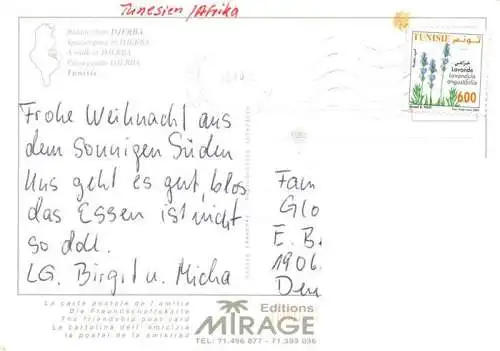 Tunesien/Afrika
DJERBA
DJERBA
DJERBA
DJERBA
Tunisie
TUNISIE تونس
خزامى
Lavande
Lavandula
angustifolia
600
Frohe Weihnacht aus
dem Sonnigen Süden
Uns geht es gut, blos
das Essen ist nicht
so doll.
LG. Birgit u. Micha
Fam
Glo
E. B.
1906.
Deu
La carte postale de l'amitié
Die Freundschaftskarte
The friendship post card
La cartolina dell' amicizia
Editions
MIRAGE
TEL: 71.496 077 - 71.393 036